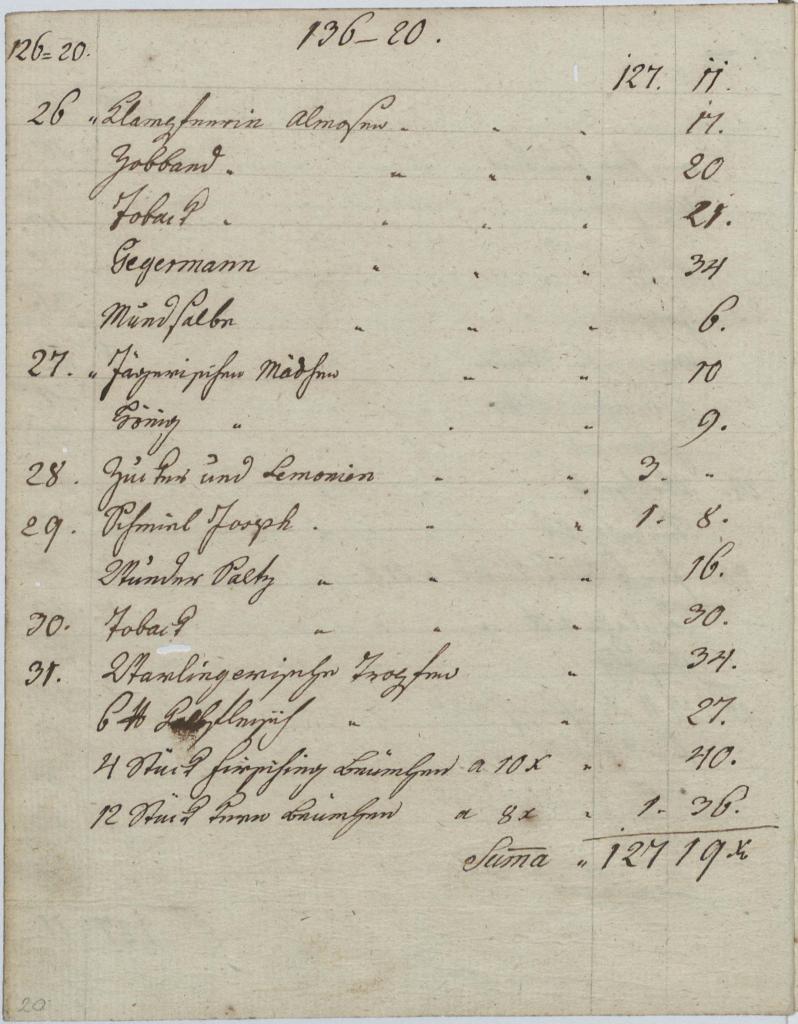 136–20.
126=20.
127. 11.
26 " Klampfnerin Almosen " " 17.
Zobband " " " " 20
Toback " " " " 21.
Gegermann " " " 34
Mundsalbe " " " 6.
27. " Jägerischen Mädchen " " 10
König " " " 9.
28. Zucker und Lemonien " " 3. "
29. Schmid Joseph " " " 1. 8.
Wunder Saltz " " " 16.
30. Toback " " " 30.
31. Tropfen " 34.
6 ℔ " " 27.
4 Stück Bäumchen a 10 x " 40.
12 Stück Bäumchen a 8x " 1. 36.
Suma " 127 19 x
20